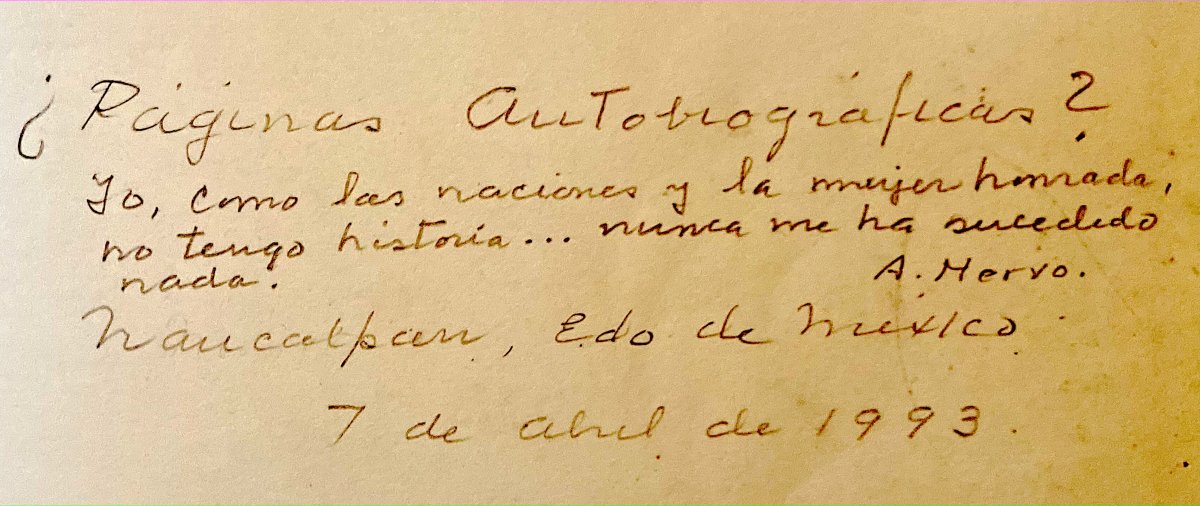 ¿Páginas Autobiográficas?
Yo, como las naciones y la mujer honrada,
no tengo historia... nunca me ha sucedido
nada. A. Nervo.
Naucalpan, Edo de México
7 de abril de 1993.